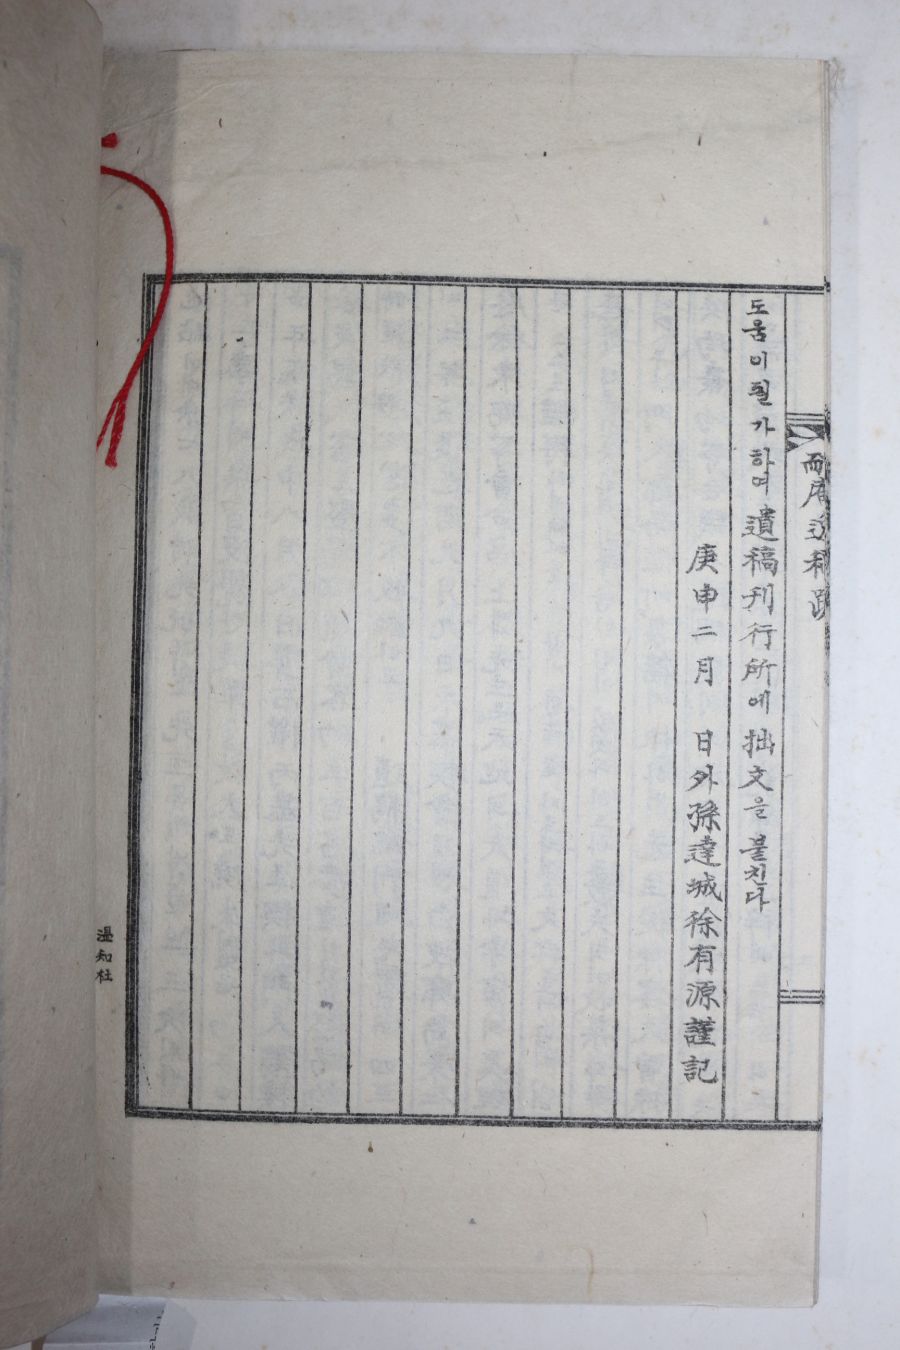 도움이 될가 하여 遺稿刊行所에 拙文을 붙친다
庚申二月 日外孫達城徐有源謹記
耐庵遺稿跋
温知社